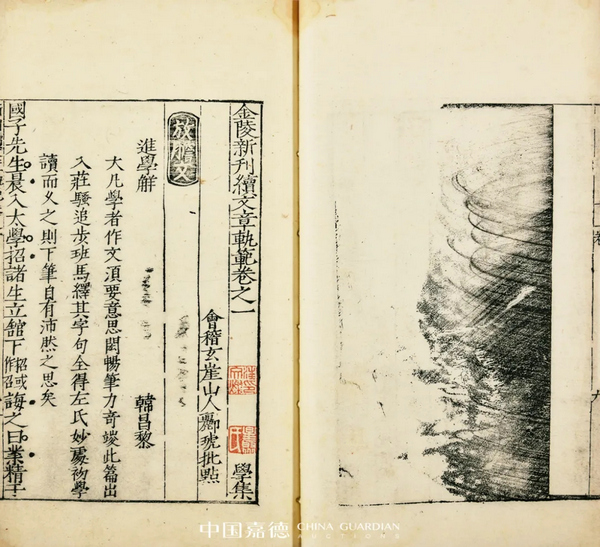 卷
金陵新刊續文章軌範卷之一 學集
會稽玄崖山人酈琥批點
放膽文
進學解 韓昌黎
大凡學者作文須要意思閎暢筆力奇竣此篇出
入莊騷追步班馬繹其字句全得左氏妙處初學
讀而久之則下筆自有沛然之思矣
國子先生晨入太學招諸生立舘下招或作召誨之曰業精于
中国嘉德 CHINA GUARDIAN
AUCTIONS